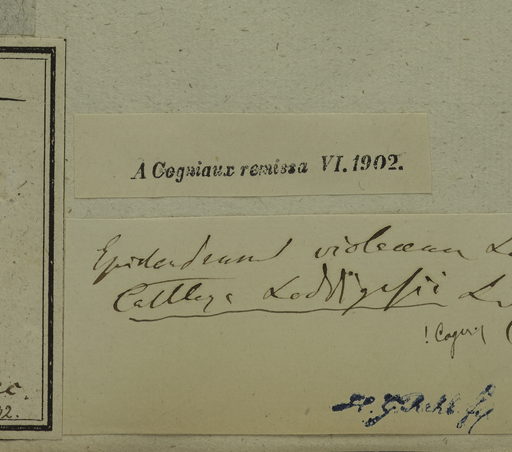 A Cogniaux remissa VI. 1902.
Epidendrum violaceum
Cattleya Loddigesii
! Cogn.
H. G. Rchb. f.
c.
92.